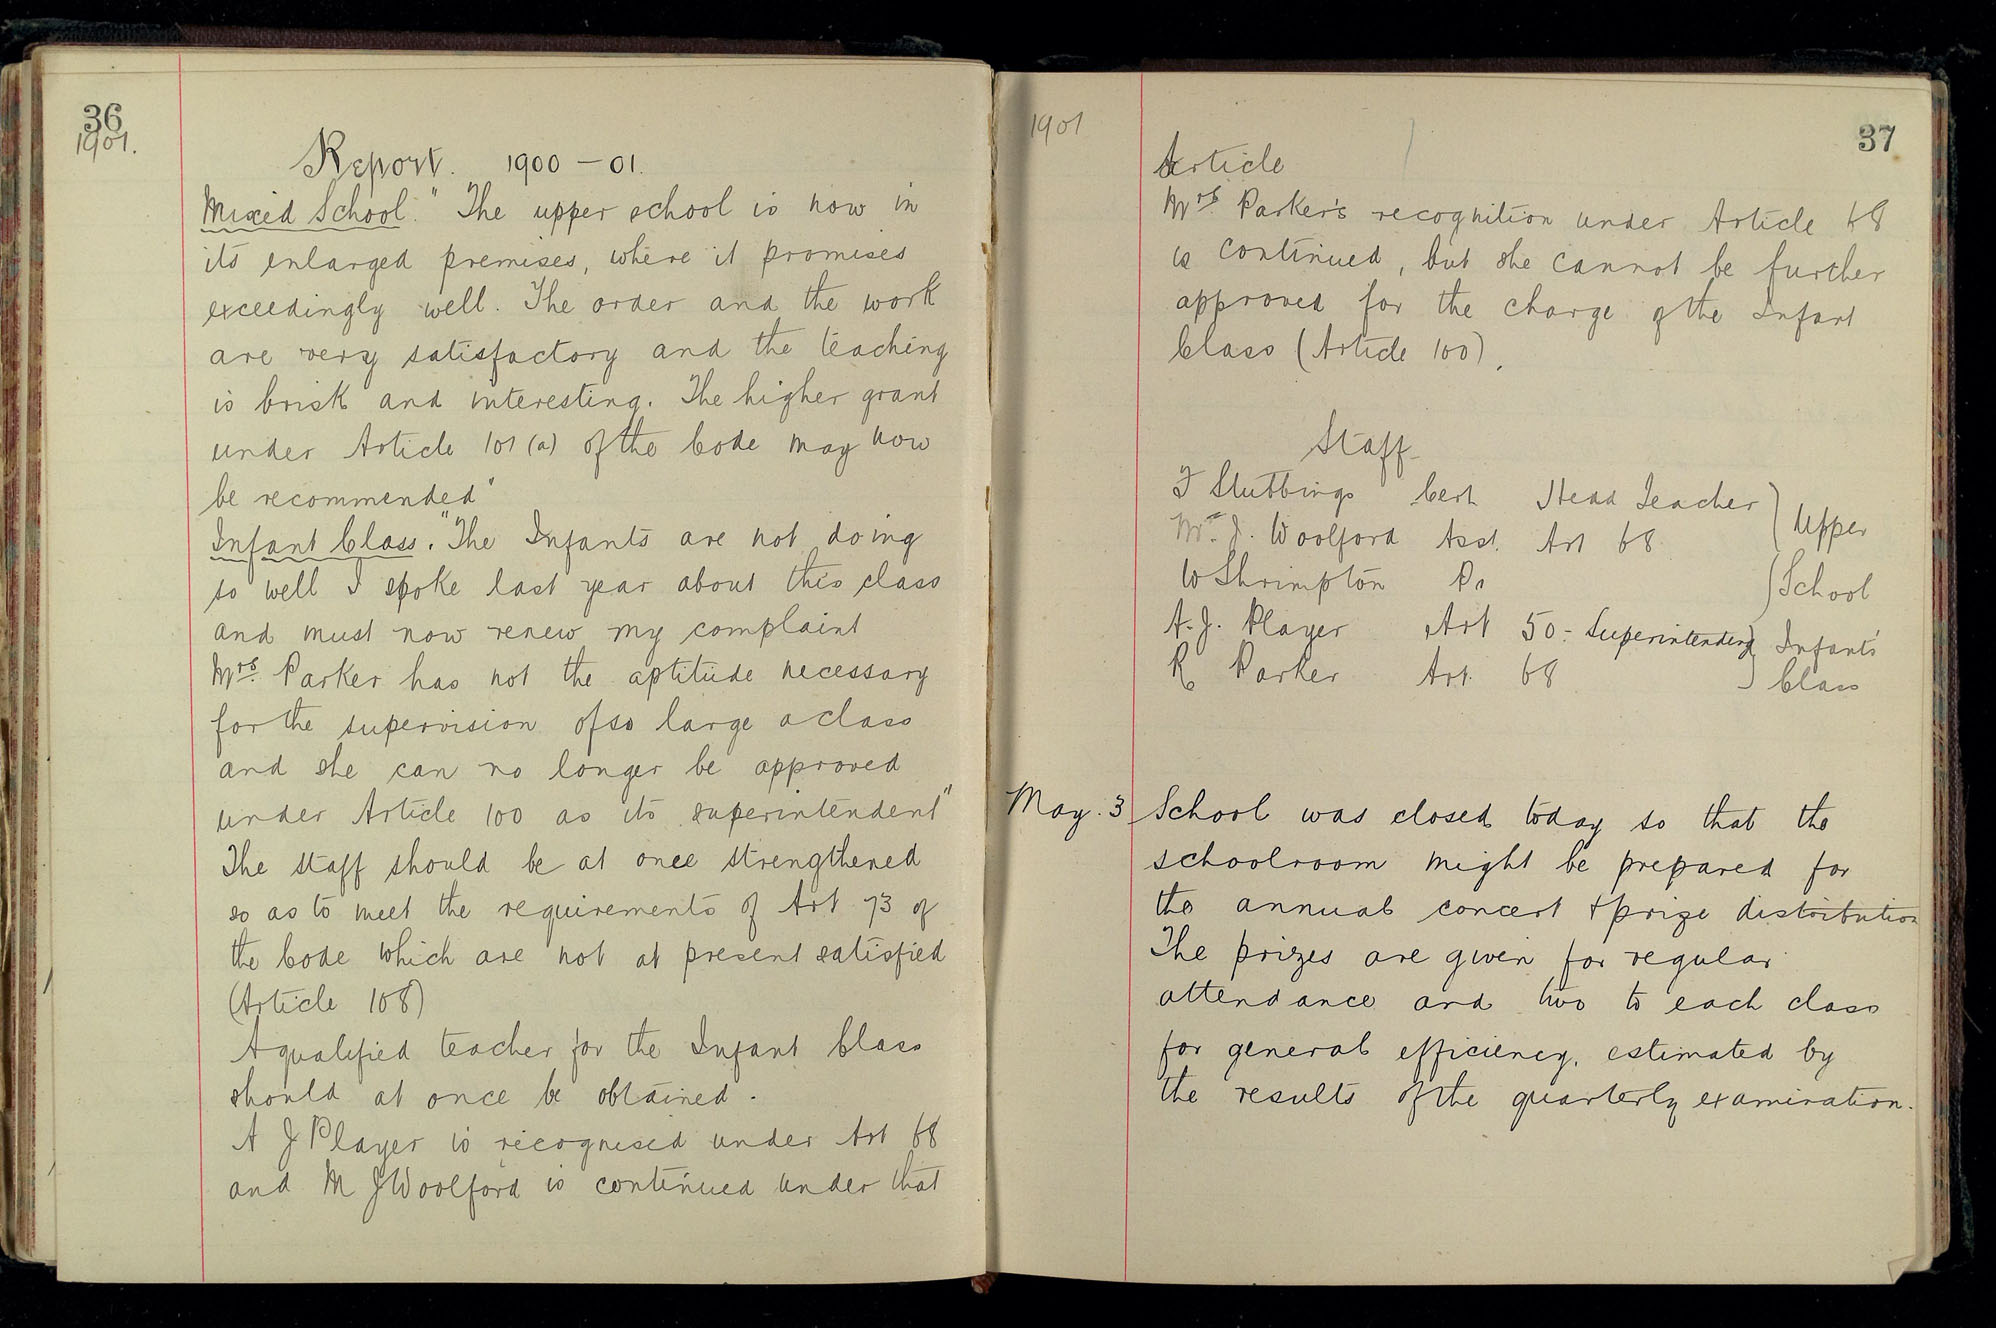 36
1901.
Report. 1900 – 01.
Mixed School. " The upper school is now in
its enlarged premises, where it promises
exceedingly well. The order and the work
are very satisfactory and the teaching
is brisk and interesting. The higher grant
under Article 101 (a) of the Code may now
be recommended"
Infant Class. "The Infants are not doing
so well I spoke last year about this class
and must now renew my complaint
Mrs. Parker has not the aptitude necessary
for the supervision of so large a class
and she can no longer be approved
under Article 100 as its superintendent"
The staff should be at once strengthened
so as to meet the requirements of Art 73 of
the Code which are not at present satisfied
(Article 108)
A qualified teacher for the Infant Class
should at once be obtained.
A J Player is recognised under Art 68
and M J Woolford is continued under that
1901
37
Article
Mrs. Parker's recognition under Article 68
is continued, but she cannot be further
approved for the charge of the Infant
Class (Article 100).
Staff
F Stubbings Cert Head Teacher
M. J. Woolford Asst. Art 68
Upper
W Shrimpton P.
School
A. J. Player Art 50 - Superintending
Infants'
R Parker Art. 68
Class
May. 3 School was closed today so that the
schoolroom might be prepared for
the annual concert & prize distribution
The prizes are given for regular
attendance and two to each class
for general efficiency, estimated by
the results of the quarterly examination.